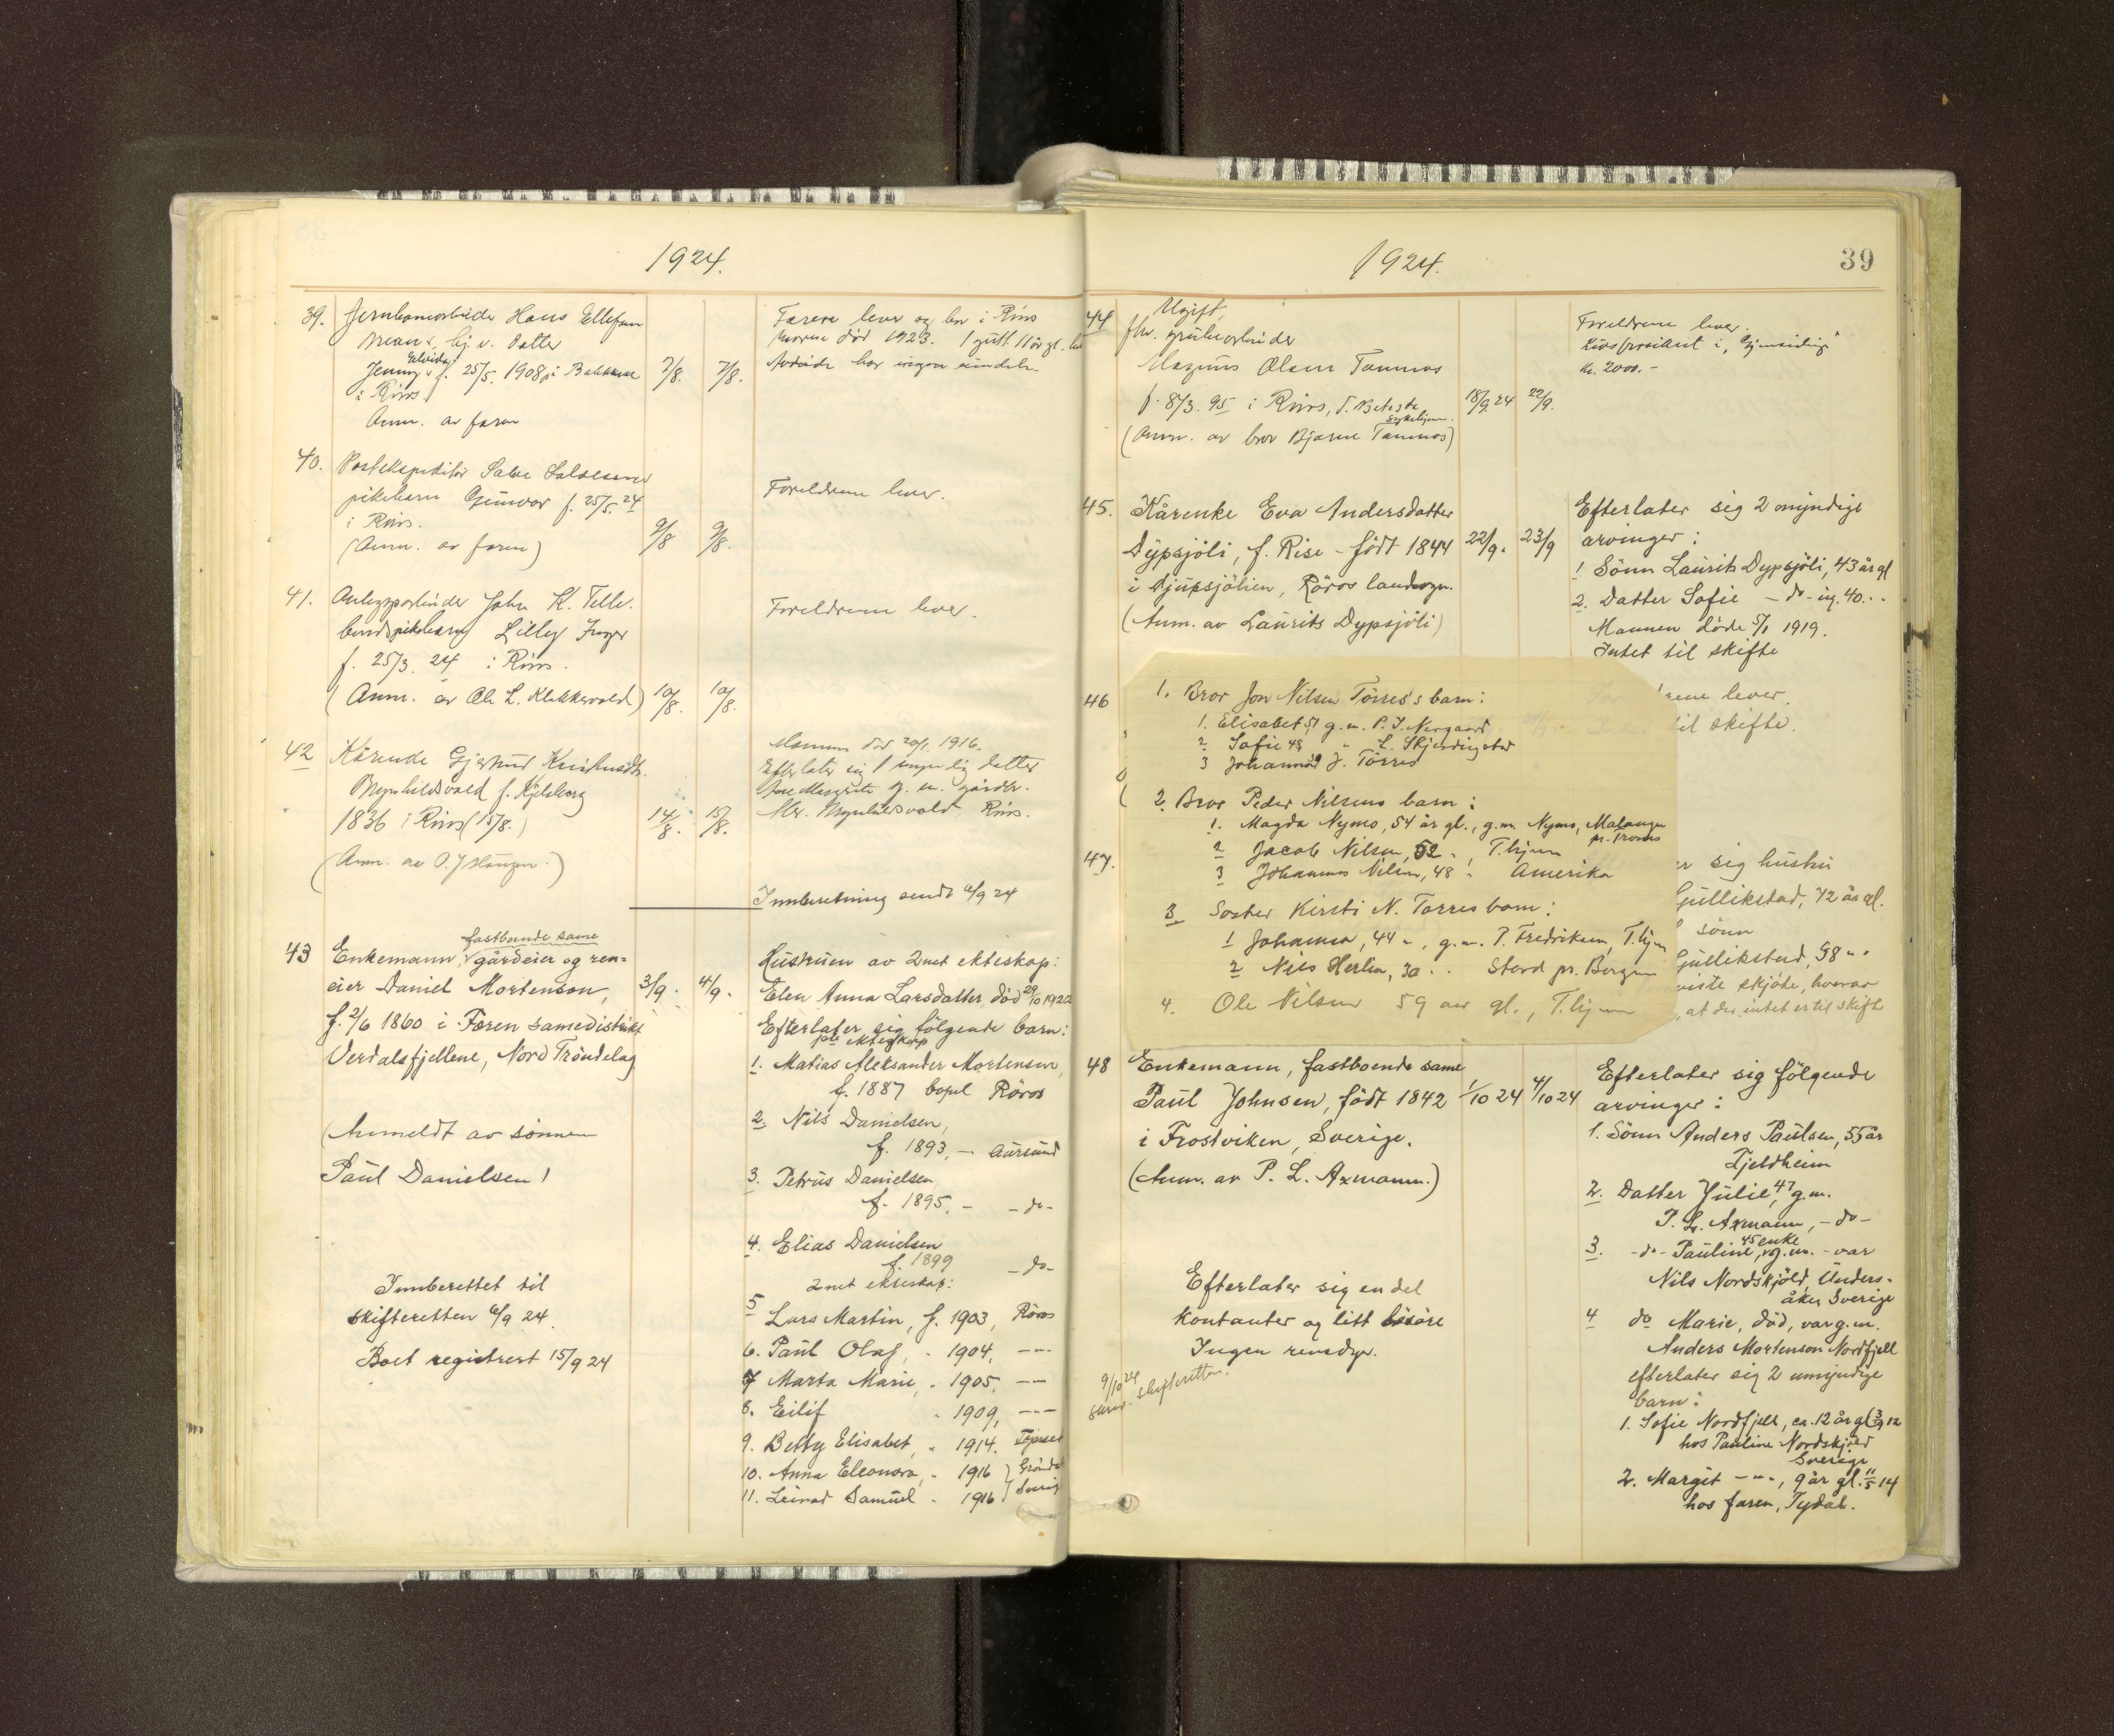 1924.
39. Jernbanearbeider Hans Ellefsen
datter
Elvida
Jenny f. 25/5. 1908 på Bakkene 7/8. 7/8.
i Röros.
Anm. av faren
Faren lever og bor i Röros
Moren död 1923. 1 gutt 11 år gl.
Avdöde har ingen eiendele.
40. Postekspeditör Salve Salvesens
pikebarn Gunvor f. 25/5. 24
i Röros.
(Anm. av faren) 9/8 9/8.
Foreldrene lever.
41. Anleggsarbeider John K. Telle-
bunds pikebarn Lilly Inger
f. 25/3. 24 i Röros.
(Anm. av Ole L. Klokkervold) 10/8. 10/8.
Foreldrene lever.
42 Kårende Gjertrud Knutsdtr.
Brynhildsvold f. Kjelsberg
1836 i Röros (15/8.) 14/8. 15/8.
(Anm. av O. J.
Mannen död 20/1. 1916.
Efterlater sig 1 myndig datter
Ane Margrete g. m. gårdbr.
Brynhildsvold Röros.
Innberetning sendt 6/9 24
43 Enkemann, fastboende same
gårdeier og ren-
eier Daniel Mortenson, 3/9. 4/9.
f. 2/6 1860 i Færen samedistrikt
Verdalsfjellene, Nord Tröndelag
(Anmeldt av sönnen
Paul Danielsen)
Innberettet til
skifteretten 6/9 24.
Boet registrert 15/9 24
Hustruen av 2net ekteskap:
Elen Anna Larsdatter, död 29/10 1922
Efterlater sig fölgende barn:
1ste ekteskap
1. Matias Aleksander Mortensen,
f. 1887 bopel Röros
2. Nils Danielsen,
f. 1893, – Aursund
3. Petrus Danielsen,
f. 1895. – – do –
4. Elias Danielsen
f. 1899 – do –
2net ekteskap:
5 Lars Martin, f. 1903, Röros
6. Paul Olaf, " 1904, –"–
7 Marta Marie, " 1905, –"–
8. Eilif " 1909, –"–
9. Betty Elisabet, " 1914.
10. Anna Eleonora, " 1916
11. Leinad Samuel " 1916
1924. 39
44 Ugift,
fhv. grubearbeider
Magnus Olsen Tamnes
f. 8/3. 95 i Röros, d. Betesta 18/9 24 22/9.
sykehjem.
(Anm. av bror Bjarne Tamnes)
Foreldrene lever.
Livsforsikret i "Gjensidige"
Kr. 2000.-
45. Kårenke Eva Andersdatter
Dypsjöli, f. Rise – född 1844 22/9. 23/9
i Djupsjölien, Röros landsogn.
(Anm. av Laurits Dypsjöli)
Efterlater sig 2 myndige
arvinger:
1 Sönn Laurits Dypsjöli, 43 år gl
2. Datter Sofie – do – ug. 40 " "
Mannen döde 5/1 1919.
Intet til skifte
46
1. Bror Jon Nilsen Törres's barn:
1. Elisabet 51 g. m. P. J. Nergaard
2 Sofie 48 " L. Skjerdingstad
3 Johannes J. Törres
2. Bror Peder Nilsens barn:
1. Magda Nymo, 54 år gl., g.m. Nymo, Malangen
pr. Tromsö
2 Jacob Nilsen, 52 " , T.hjem
3 Johannes Nilsen, 48 " Amerika
3 Söster Kirsti N. Törres barn:
1 Johanna, 44 " , g. m. P. Fredriksen, T.hjem
2 Nils Herlin, 30 " " Stord pr. Bergen
4. Ole Nilsen 59 aar gl., T.hjem
rene lever.
til skifte.
47.
er sig hustru
Gullikstad, 72 år gl.
sönn
Gullikstad, 38 " "
viste skjöte, hvorav
, at der intet er til skifte
48 Enkemann, fastboende same
Paul Johnsen, född 1842 1/10 24 4/10 24
i Frostviken, Sverige.
(Anm. av P. L. Axmann.)
Efterlater sig en del
kontanter og litt lösöre
Ingen rensdyr.
9/10 24
skrev. skifteretten.
Efterlater sig fölgende
arvinger:
1. Sönn Anders Paulsen, 55 år
Fjeldheim
2. Datter Julie, 47 g. m.
P. L. Axmann, – do –
3. – do – Pauline, 45 enke g. m. – var
Nils Nordskjöld, Unders-
åker Sverige
4 do Marie, död, var g. m.
Anders Mortenson Nordfjell
efterlater sig 2 umyndige
barn:
1. Sofie Nordfjell, ca. 12 år gl 3/9 12
hos Pauline Nordskjöld
Sverige
2. Margit –"–, 9 år gl. 11/5 14
hos faren, Tydal.